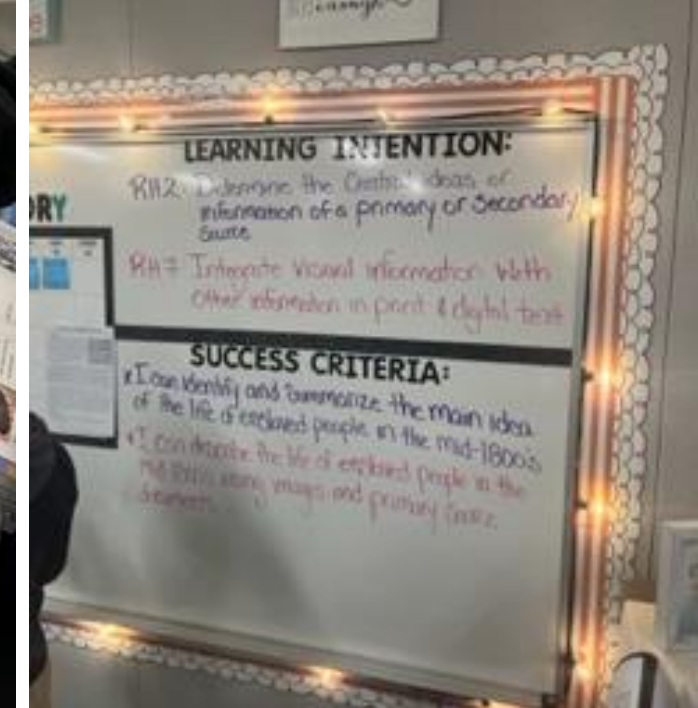 LEARNING INTENTION:
RH2: Determine the Central ideas or
information of a primary or secondary
source
RH7 Integrate visual information with
other information in print & digital text
ORY
SUCCESS CRITERIA:
I can identify and summarize the main idea
of the life of enslaved people in the mid-1800's
I can describe the life of enslaved people in the
mid 1800s using images and primary source
documents